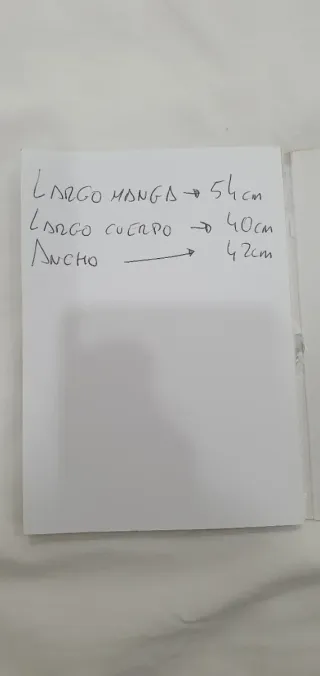 LARGO MANGA → 54cm
LARGO CUERPO → 40cm
ANCHO → 42cm